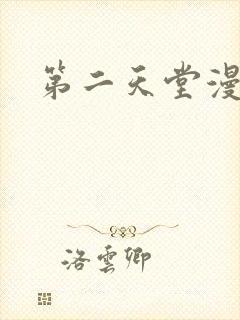 第二天堂漫
洛雲卿